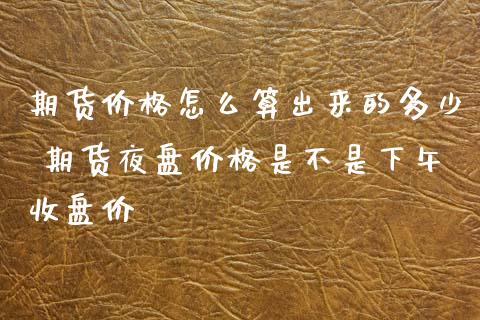 期货价格怎么算出来的多少
期货夜盘价格是不是下午
收盘价